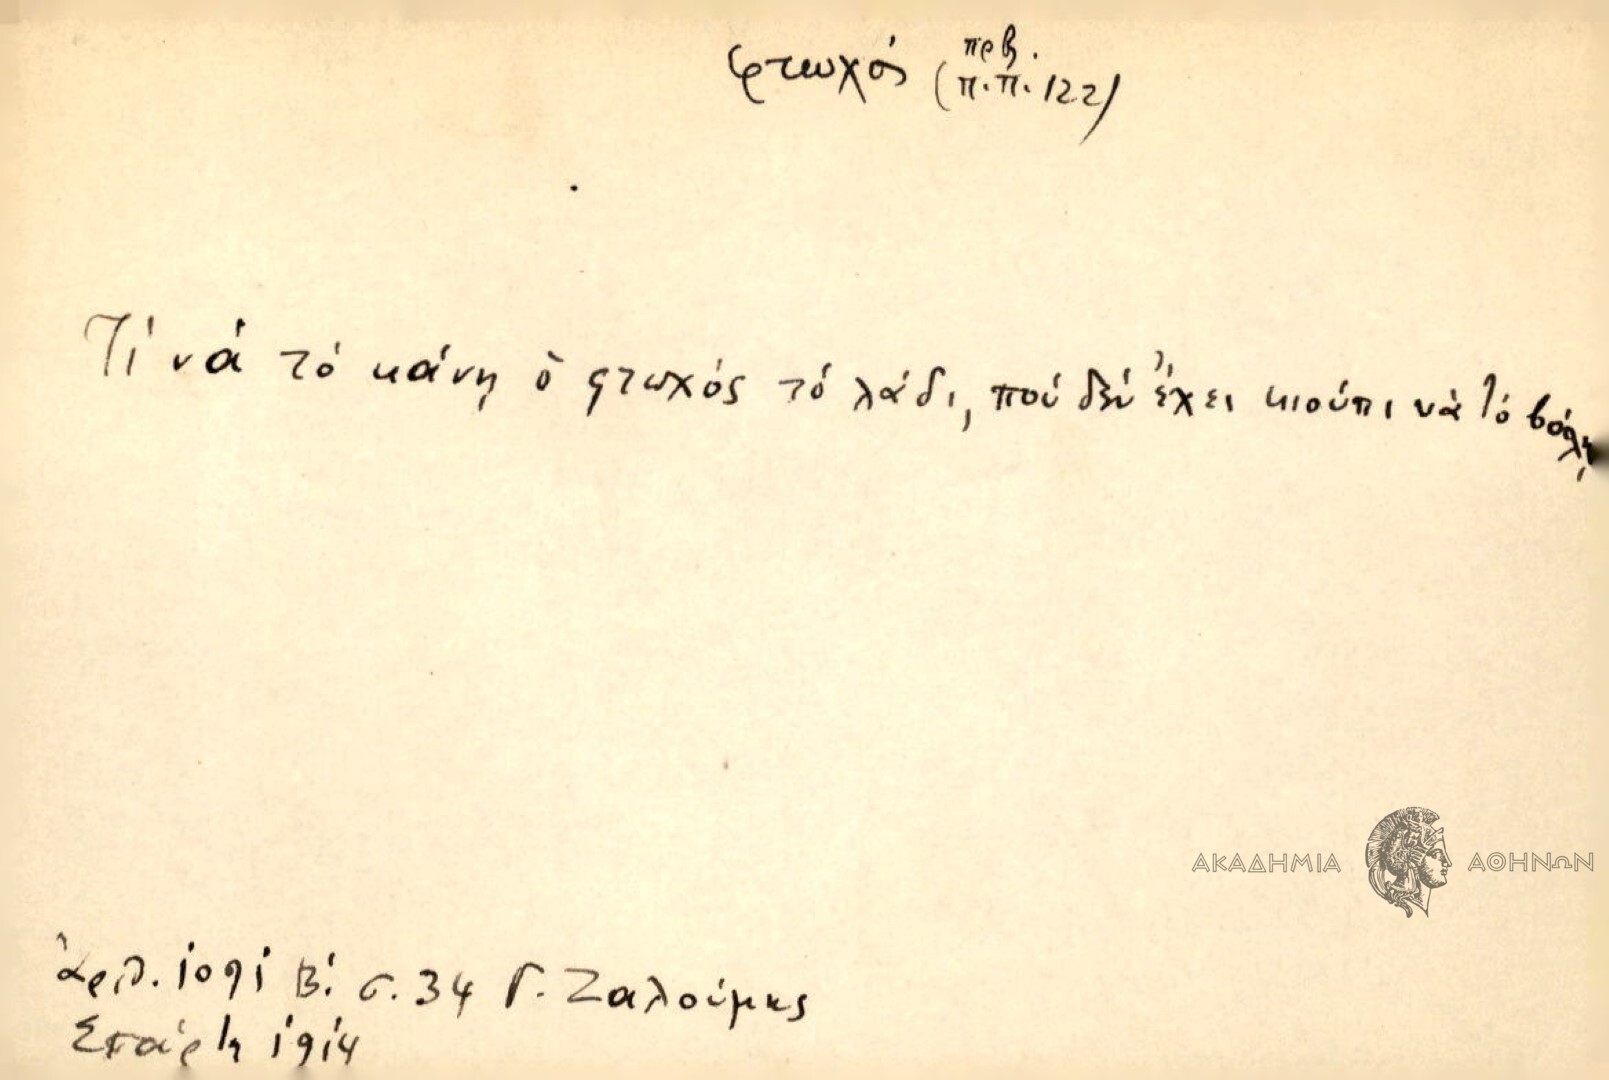 φτωχός (πρβ. π.π. 122)
Τί νά τό κάνη ὁ φτωχός τό λάδι, πού δέν ἔχει κιούπι νά τό βάλη
ΑΚΑΔΗΜΙΑ ΑΘΗΝΩΝ
ἀριθ. 1091 Β! σ. 34 Γ. Ζαλούμης
Σπάρτη 1914